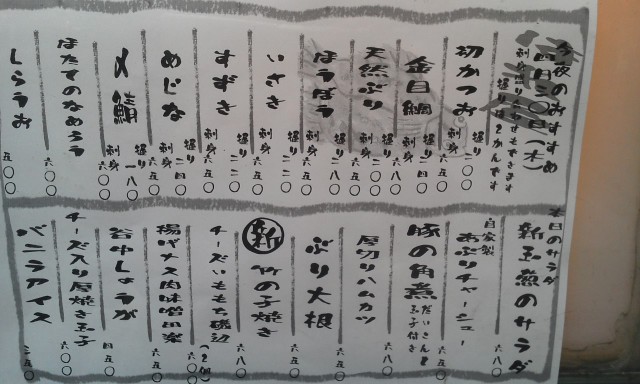 今夜のおすすめ
四月三〇日(木)
刺身盛り合わせもできます
握りは2かんです
初かつお
握り
刺身 六五〇
金目鯛
握り 二四〇
刺身 六五〇
天然ぶり
握り 二〇〇
刺身 六五〇
ほうぼう
握り 一八〇
刺身 六〇〇
いさき
握り 二二〇
刺身 六五〇
すずき
握り 二二〇
刺身 六五〇
めじな
握り 二四〇
刺身 六五〇
〆鯖
握り 一八〇
刺身 六〇〇
ほたてのなめろう 六〇〇
しらうお 五〇〇
本日のサラダ
新玉葱のサラダ 六八〇
自家製
あぶりチャーシュー 六五〇
豚の角煮 だいこんと玉子付き 六八〇
厚切りハムカツ 六五〇
ぶり大根 六五〇
新 竹の子焼き 六八〇
チーズいももち磯辺 (2個)
揚げナス肉味噌田楽 六五〇
谷中しょうが 四五〇
チーズ入り厚焼き玉子 六〇〇
バニラアイス 二五〇